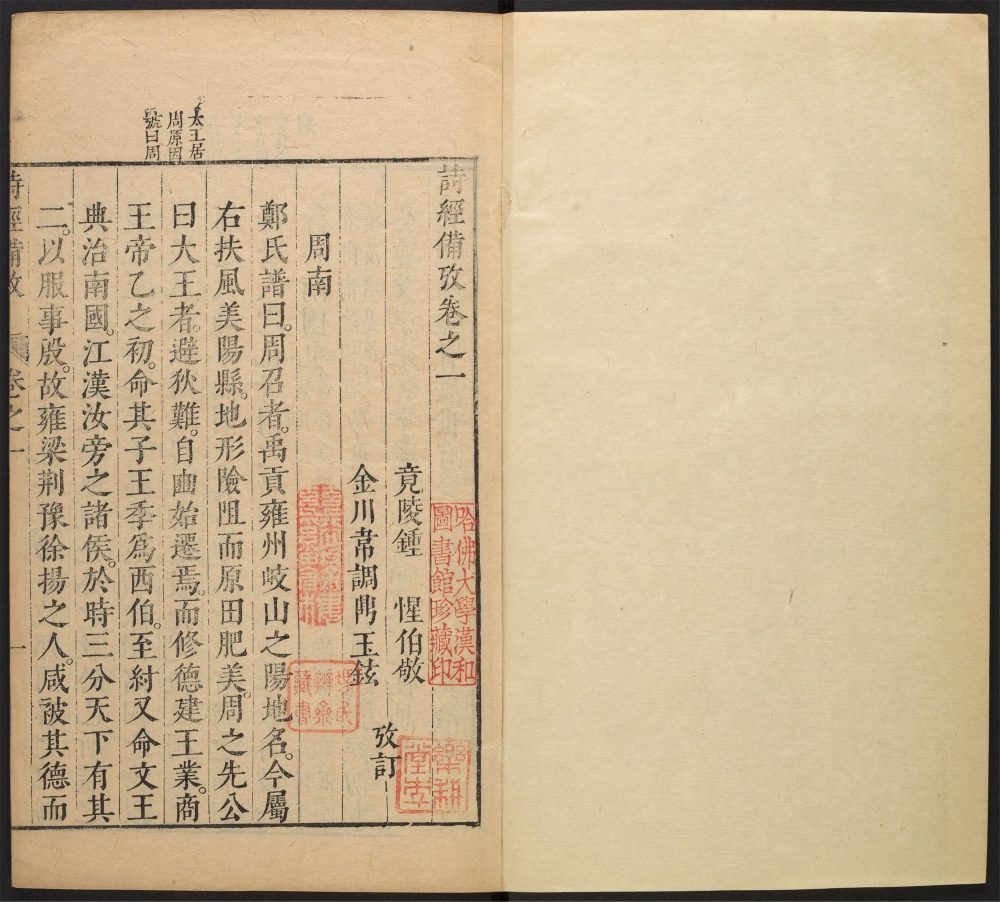 詩經備攷卷之一
竟陵鍾 惺伯敬
金川韋調鼎玉鉉
攷訂
哈佛大學漢和
圖書館珍藏印
周南
鄭氏譜曰。周召者。禹貢雍州岐山之陽地名。今屬
右扶風美陽縣。地形險阻而原田肥美。周之先公
曰大王者。避狄難。自豳始遷焉。而修德建王業。商
王帝乙之初。命其子王季爲西伯。至紂又命文王
典治南國。江漢汝旁之諸侯。於時三分天下有其
二。以服事殷。故雍梁荆豫徐揚之人。咸被其德而
太王居
周原因
號曰周
詩經備攷 卷之一 一